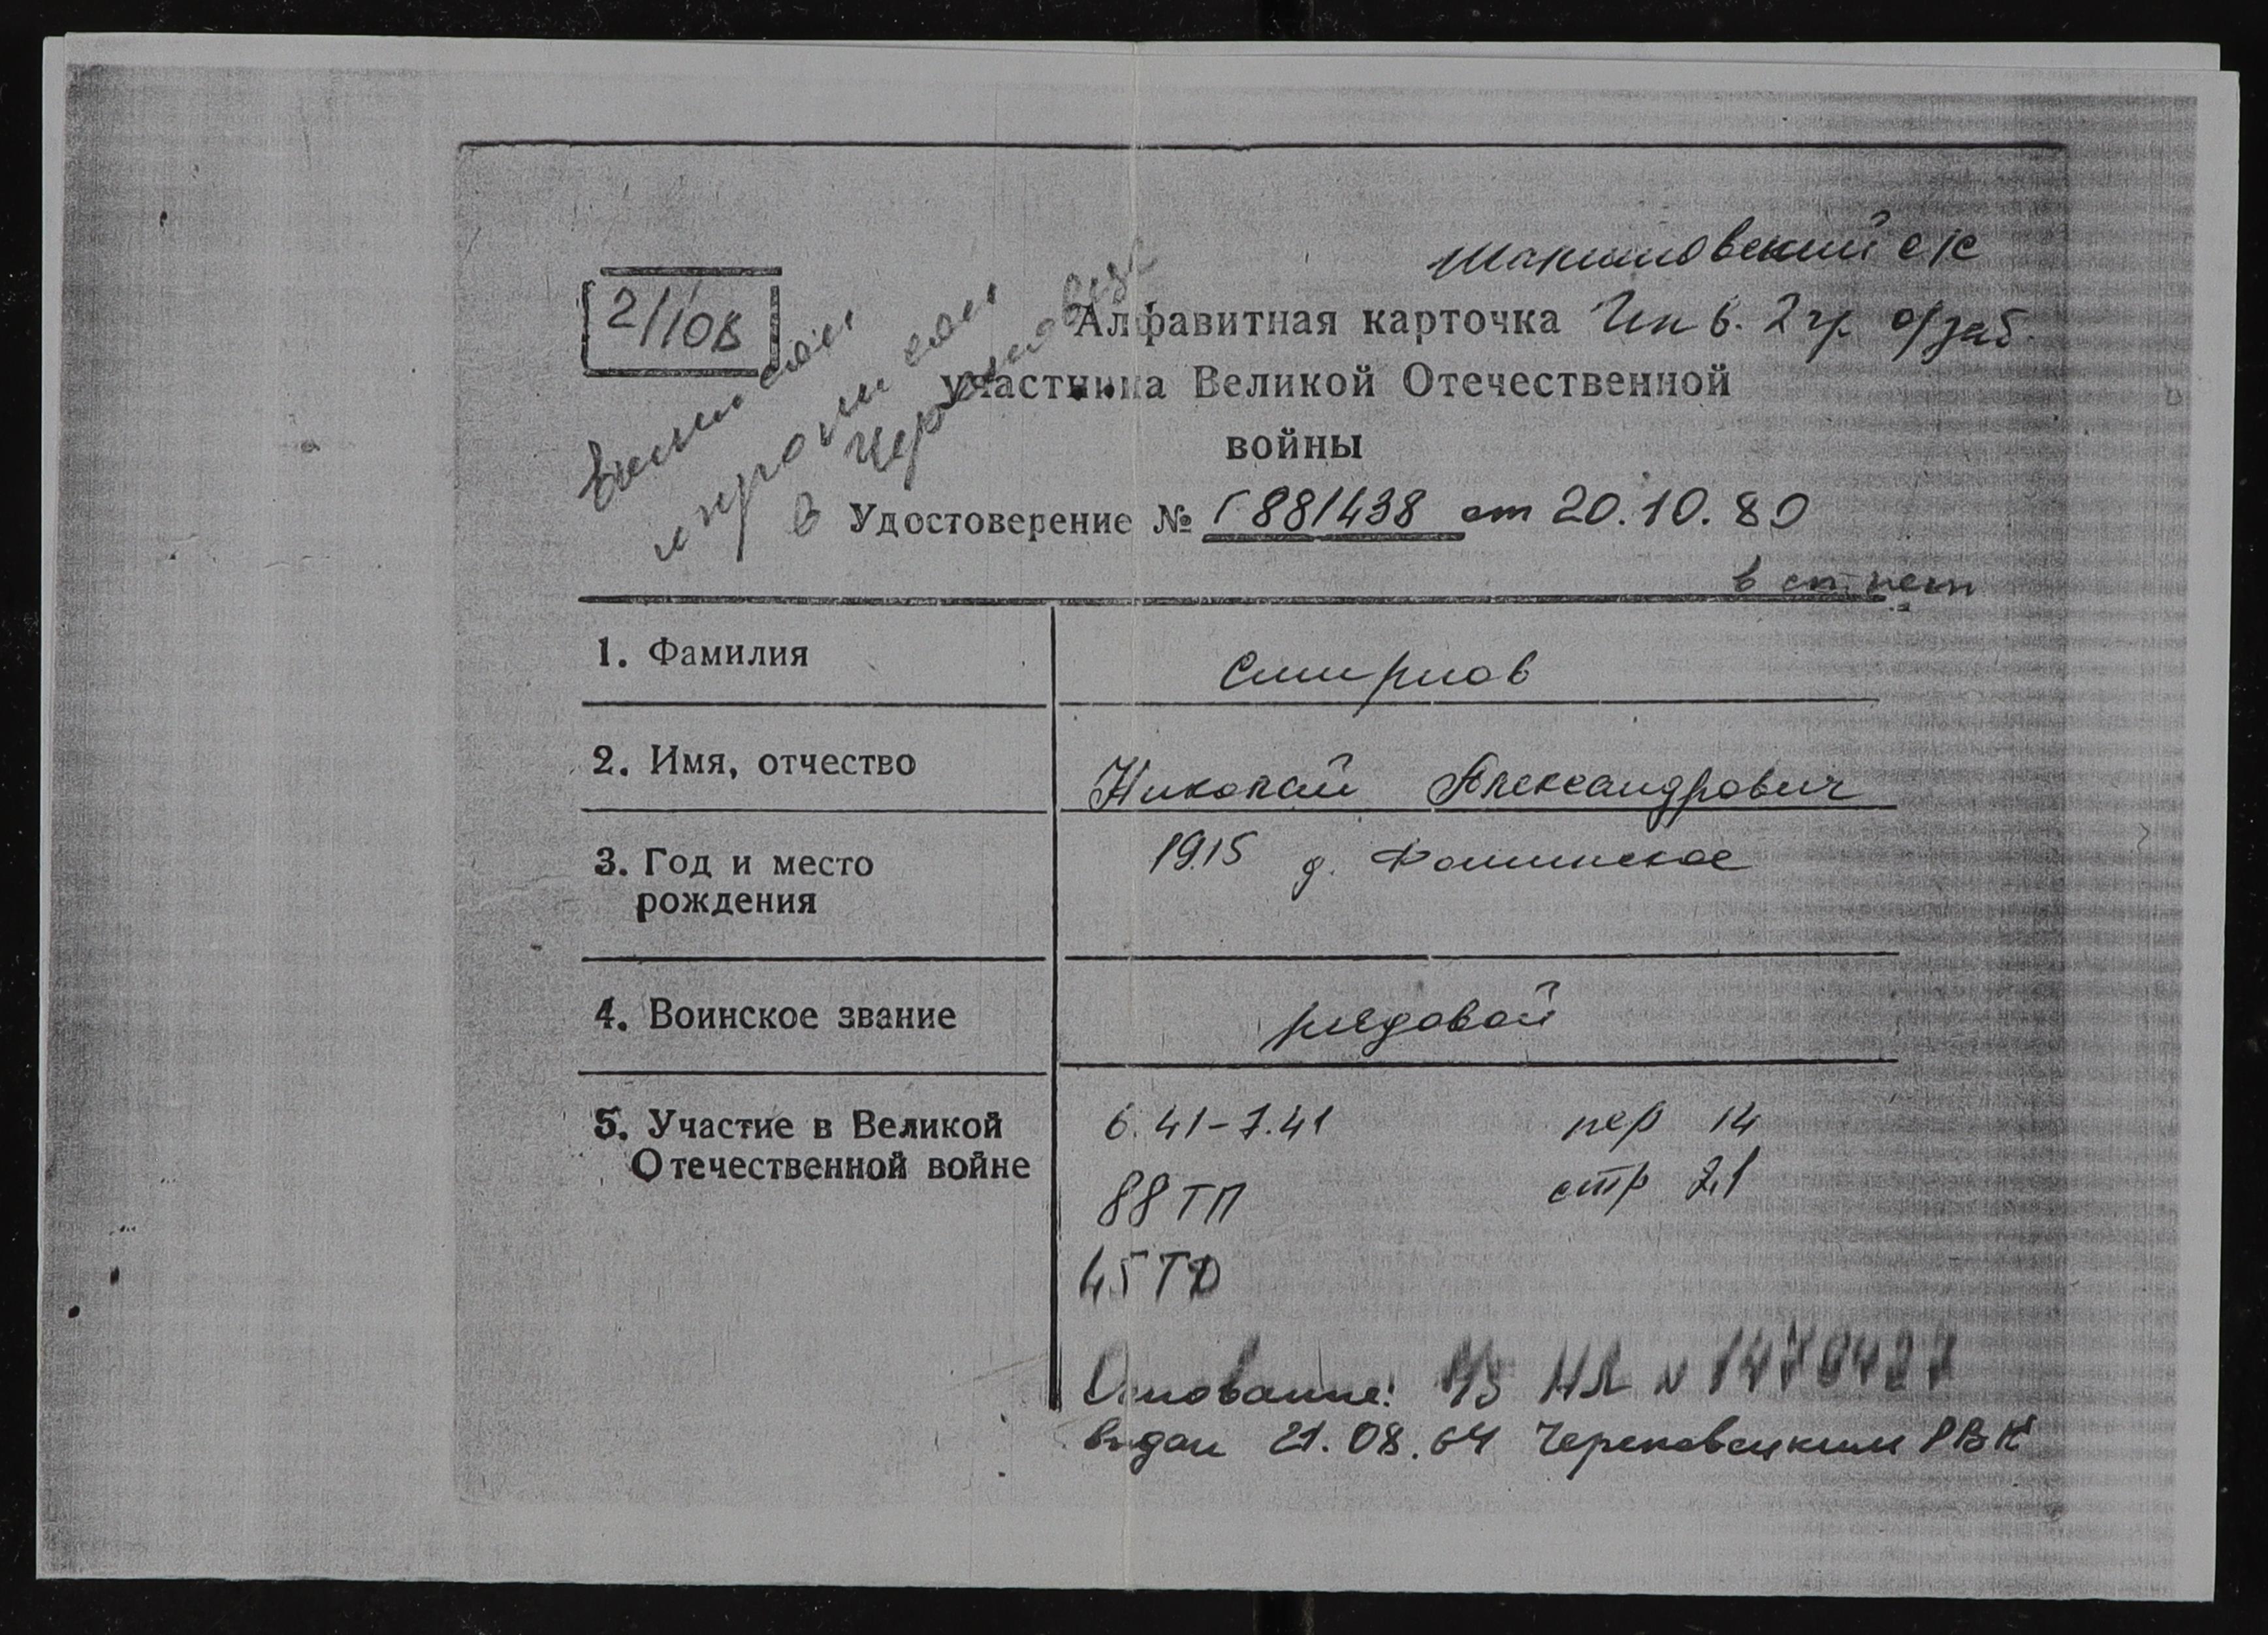 с/с
2/10в
Алфавитная карточка Инв. 2 гр. о/заб.
участника Великой Отечественной
войны
Удостоверение № Г 881438 от 20.10.80
в сп. нет
1. Фамилия
Смирнов
2. Имя, отчество
Николай Александрович
3. Год и место
рождения
1915 д. Фоминское
4. Воинское звание
рядовой
5. Участие в Великой
Отечественной войне
6.41-7.41 пер 14
88 ТП стр 21
45 ТД
Основание: В/б НЛ № 1470427
выдан 21.08.64 Череповецким РВК